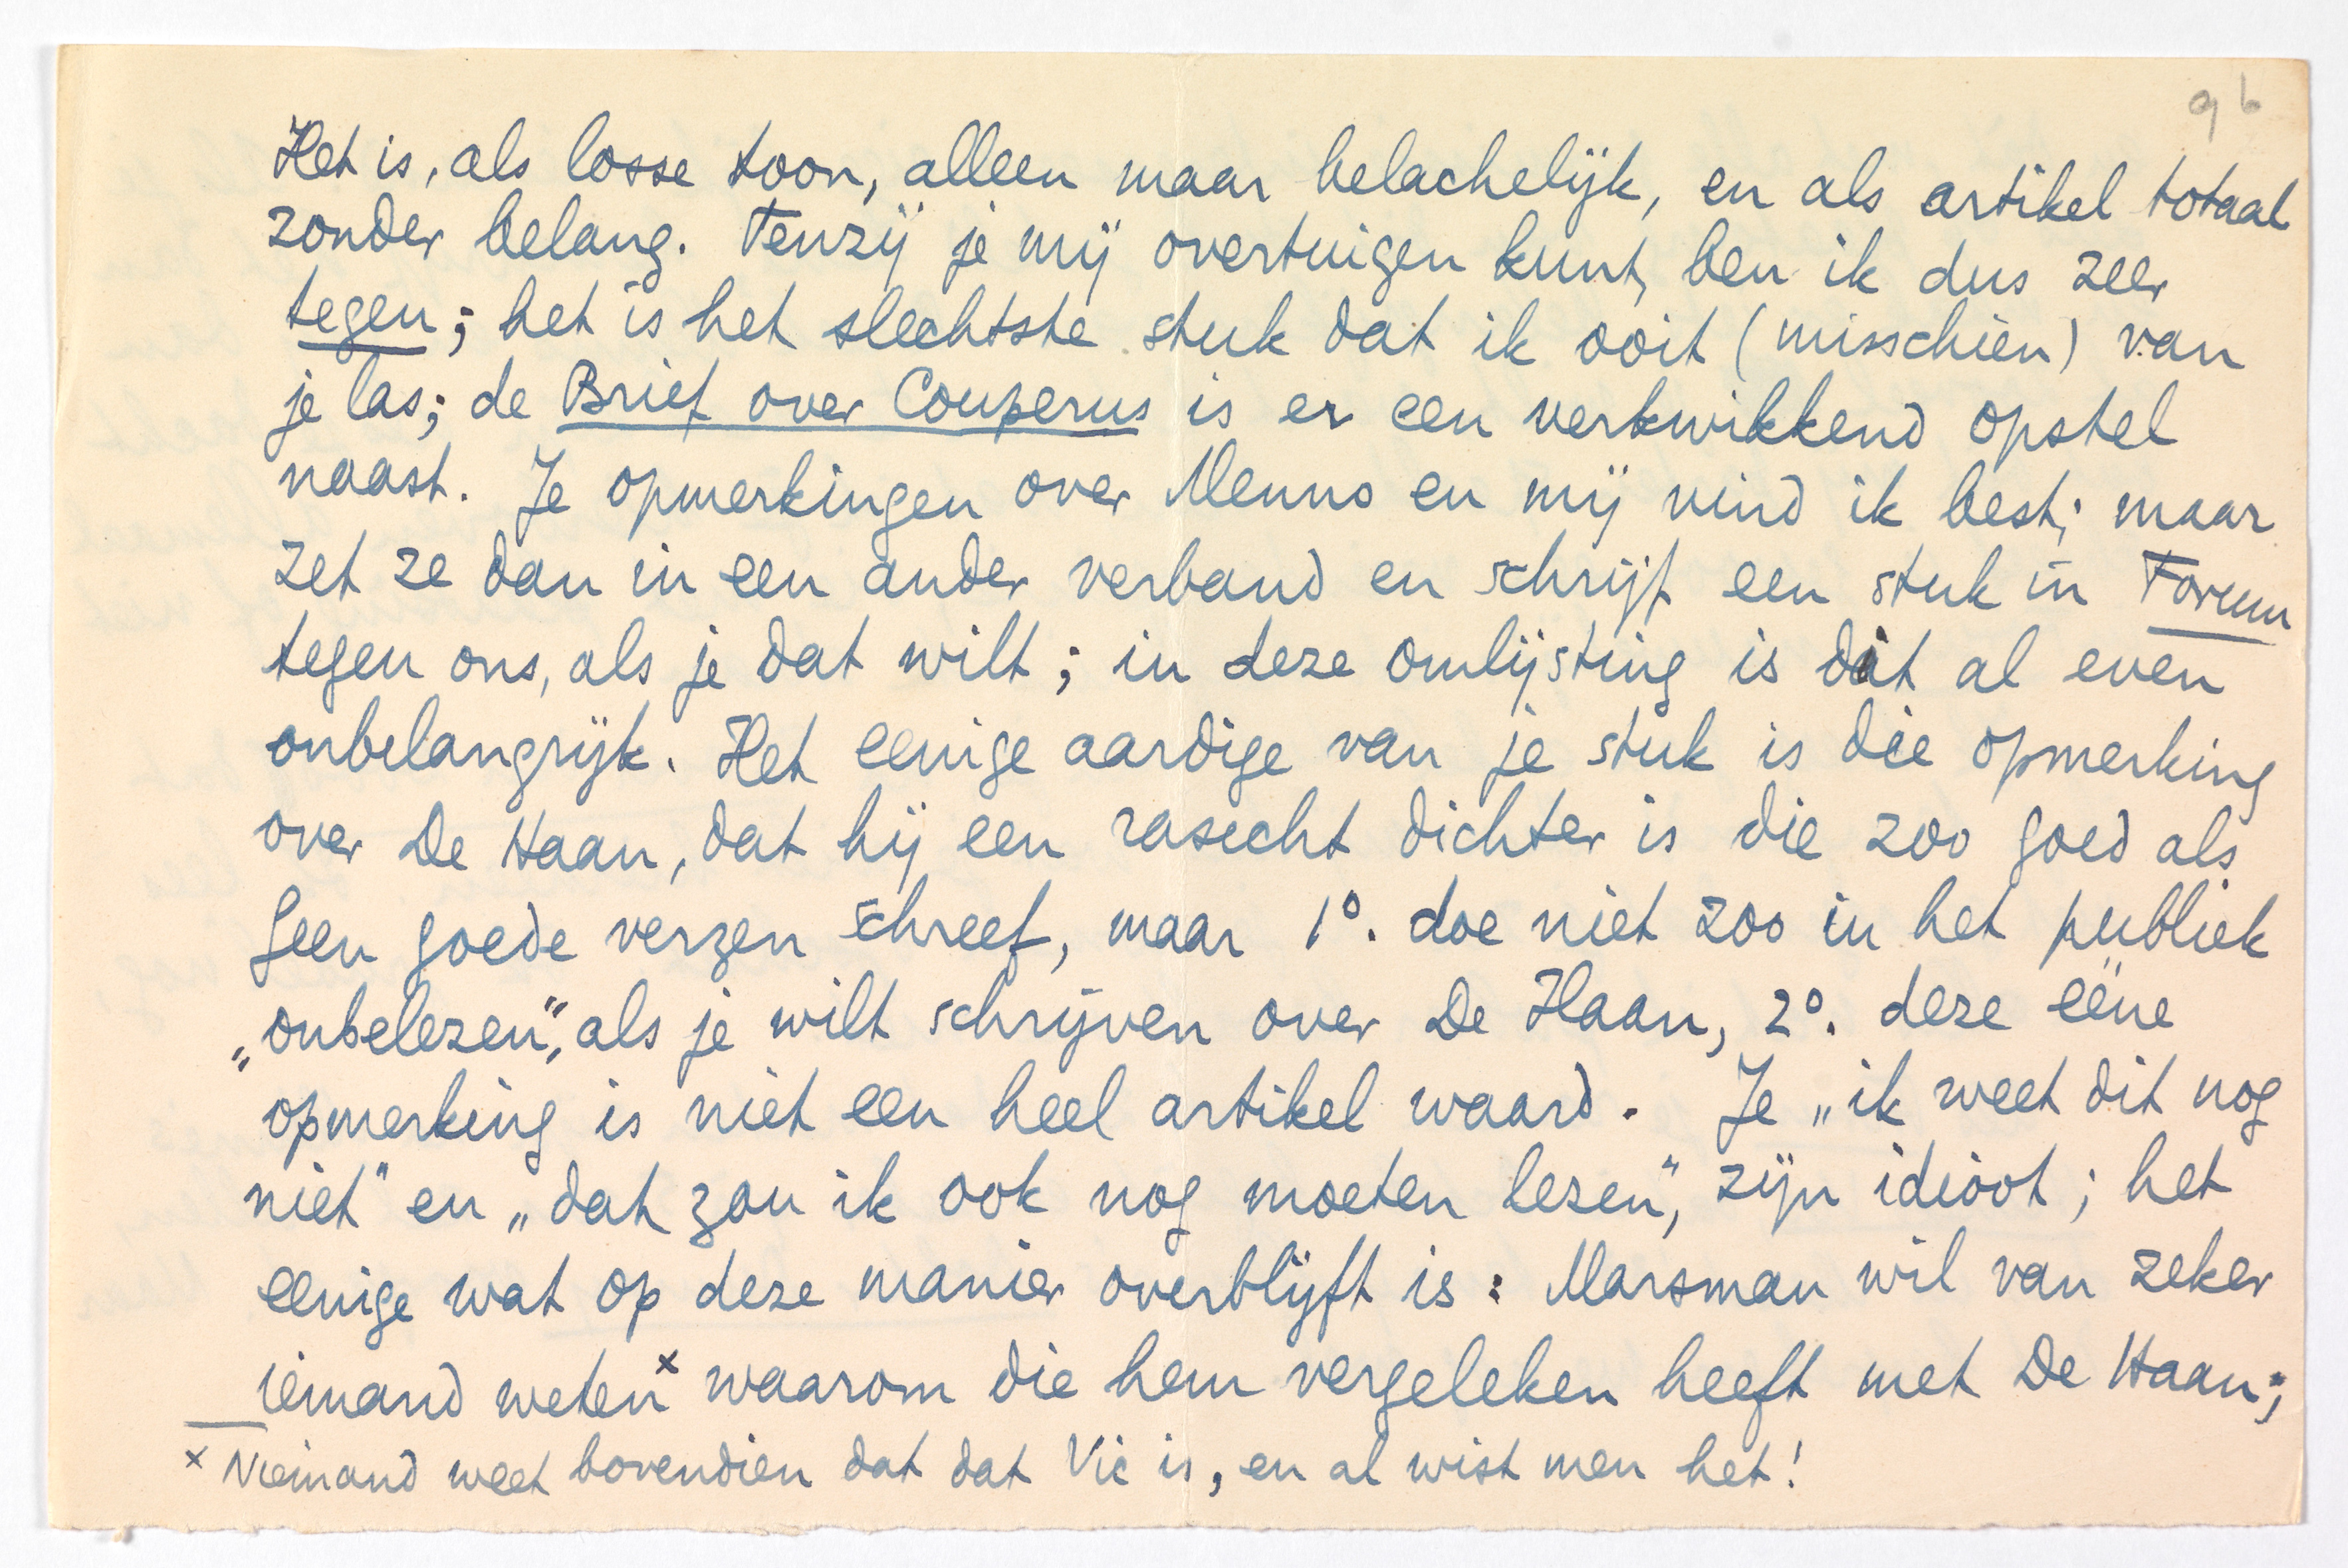 9b
Het is, als losse toon, alleen maar belachelijk, en als artikel totaal
zonder belang. Tenzij je mij overtuigen kunt, ben ik dus zeer
tegen; het is het slechtste stuk dat ik ooit (misschien) van
je las; de Brief over Couperus is er een verkwikkend opstel
naast. Je opmerkingen over Menno en mij vind ik best; maar
zet ze dan in een ander verband en schrijf een stuk in Forum
tegen ons, als je dat wilt; in deze omlijsting is dit al even
onbelangrijk. Het eenige aardige van je stuk is die opmerking
over De Haan, dat hij een rasecht dichter is die zoo goed als
geen goede verzen schreef, maar 1º. doe niet zoo in het publiek
„onbelezen”, als je wilt schrijven over De Haan, 2º. deze ééne
opmerking is niet een heel artikel waard. Je „ik weet dit nog
niet” en „dat zou ik ook nog moeten lezen”, zijn idioot; het
eenige wat op deze manier overblijft is: Marsman wil van zeker
iemand weten x waarom die hem vergeleken heeft met De Haan;
x Niemand weet bovendien dat dat Vic is, en al wist men het!